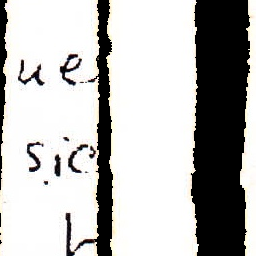 ue
sic
h